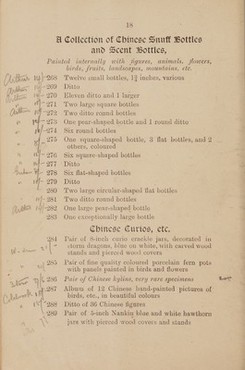 18
A Collection of Chinese Snuff Bottles
and Scent Bottles,
Painted internally with figures, animals, flowers,
birds, fruits, landscapes, mountains, etc.
268 Twelve small bottles, 1¾ inches, various
269 Ditto
270 Eleven ditto and 1 larger
271 Two large square bottles
272 Two ditto round bottles
273 One pear-shaped bottle and 1 round ditto
274 Six round bottles
275 One square-shaped bottle, 3 flat bottles, and 2
others, coloured
276 Six square-shaped bottles
277 Ditto
278 Six flat-shaped bottles
279 Ditto
280 Two large circular-shaped flat bottles
281 Two ditto round bottles
282 One large pear-shaped bottle
283 One exceptionally large bottle
Chinese Curios, etc.
284 Pair of 8-inch curio crackle jars, decorated in
storm dragons, blue on white, with carved wood
stands and pierced wood covers
285 Pair of fine quality coloured porcelain fern pots
with panels painted in birds and flowers
286 Pair of Chinese kylins, very rare specimens
287 Album of 12 Chinese hand-painted pictures of
birds, etc., in beautiful colours
288 Ditto of 36 Chinese figures
289 Pair of 5-inch Nankin blue and white hawthorn
jars with pierced wood covers and stands